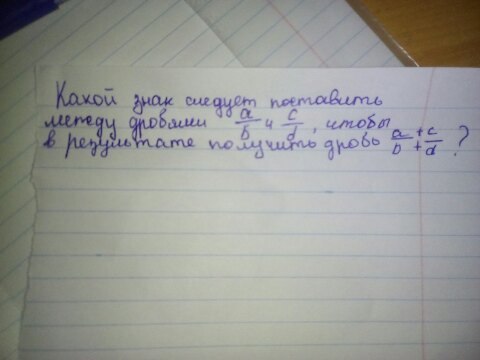 Какой знак следует поставить
между дробями a/b и c/d, чтобы
в результате получить дробь a+c/b+d ?